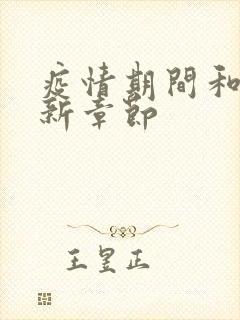 疫情期間和
新章節
王昱正